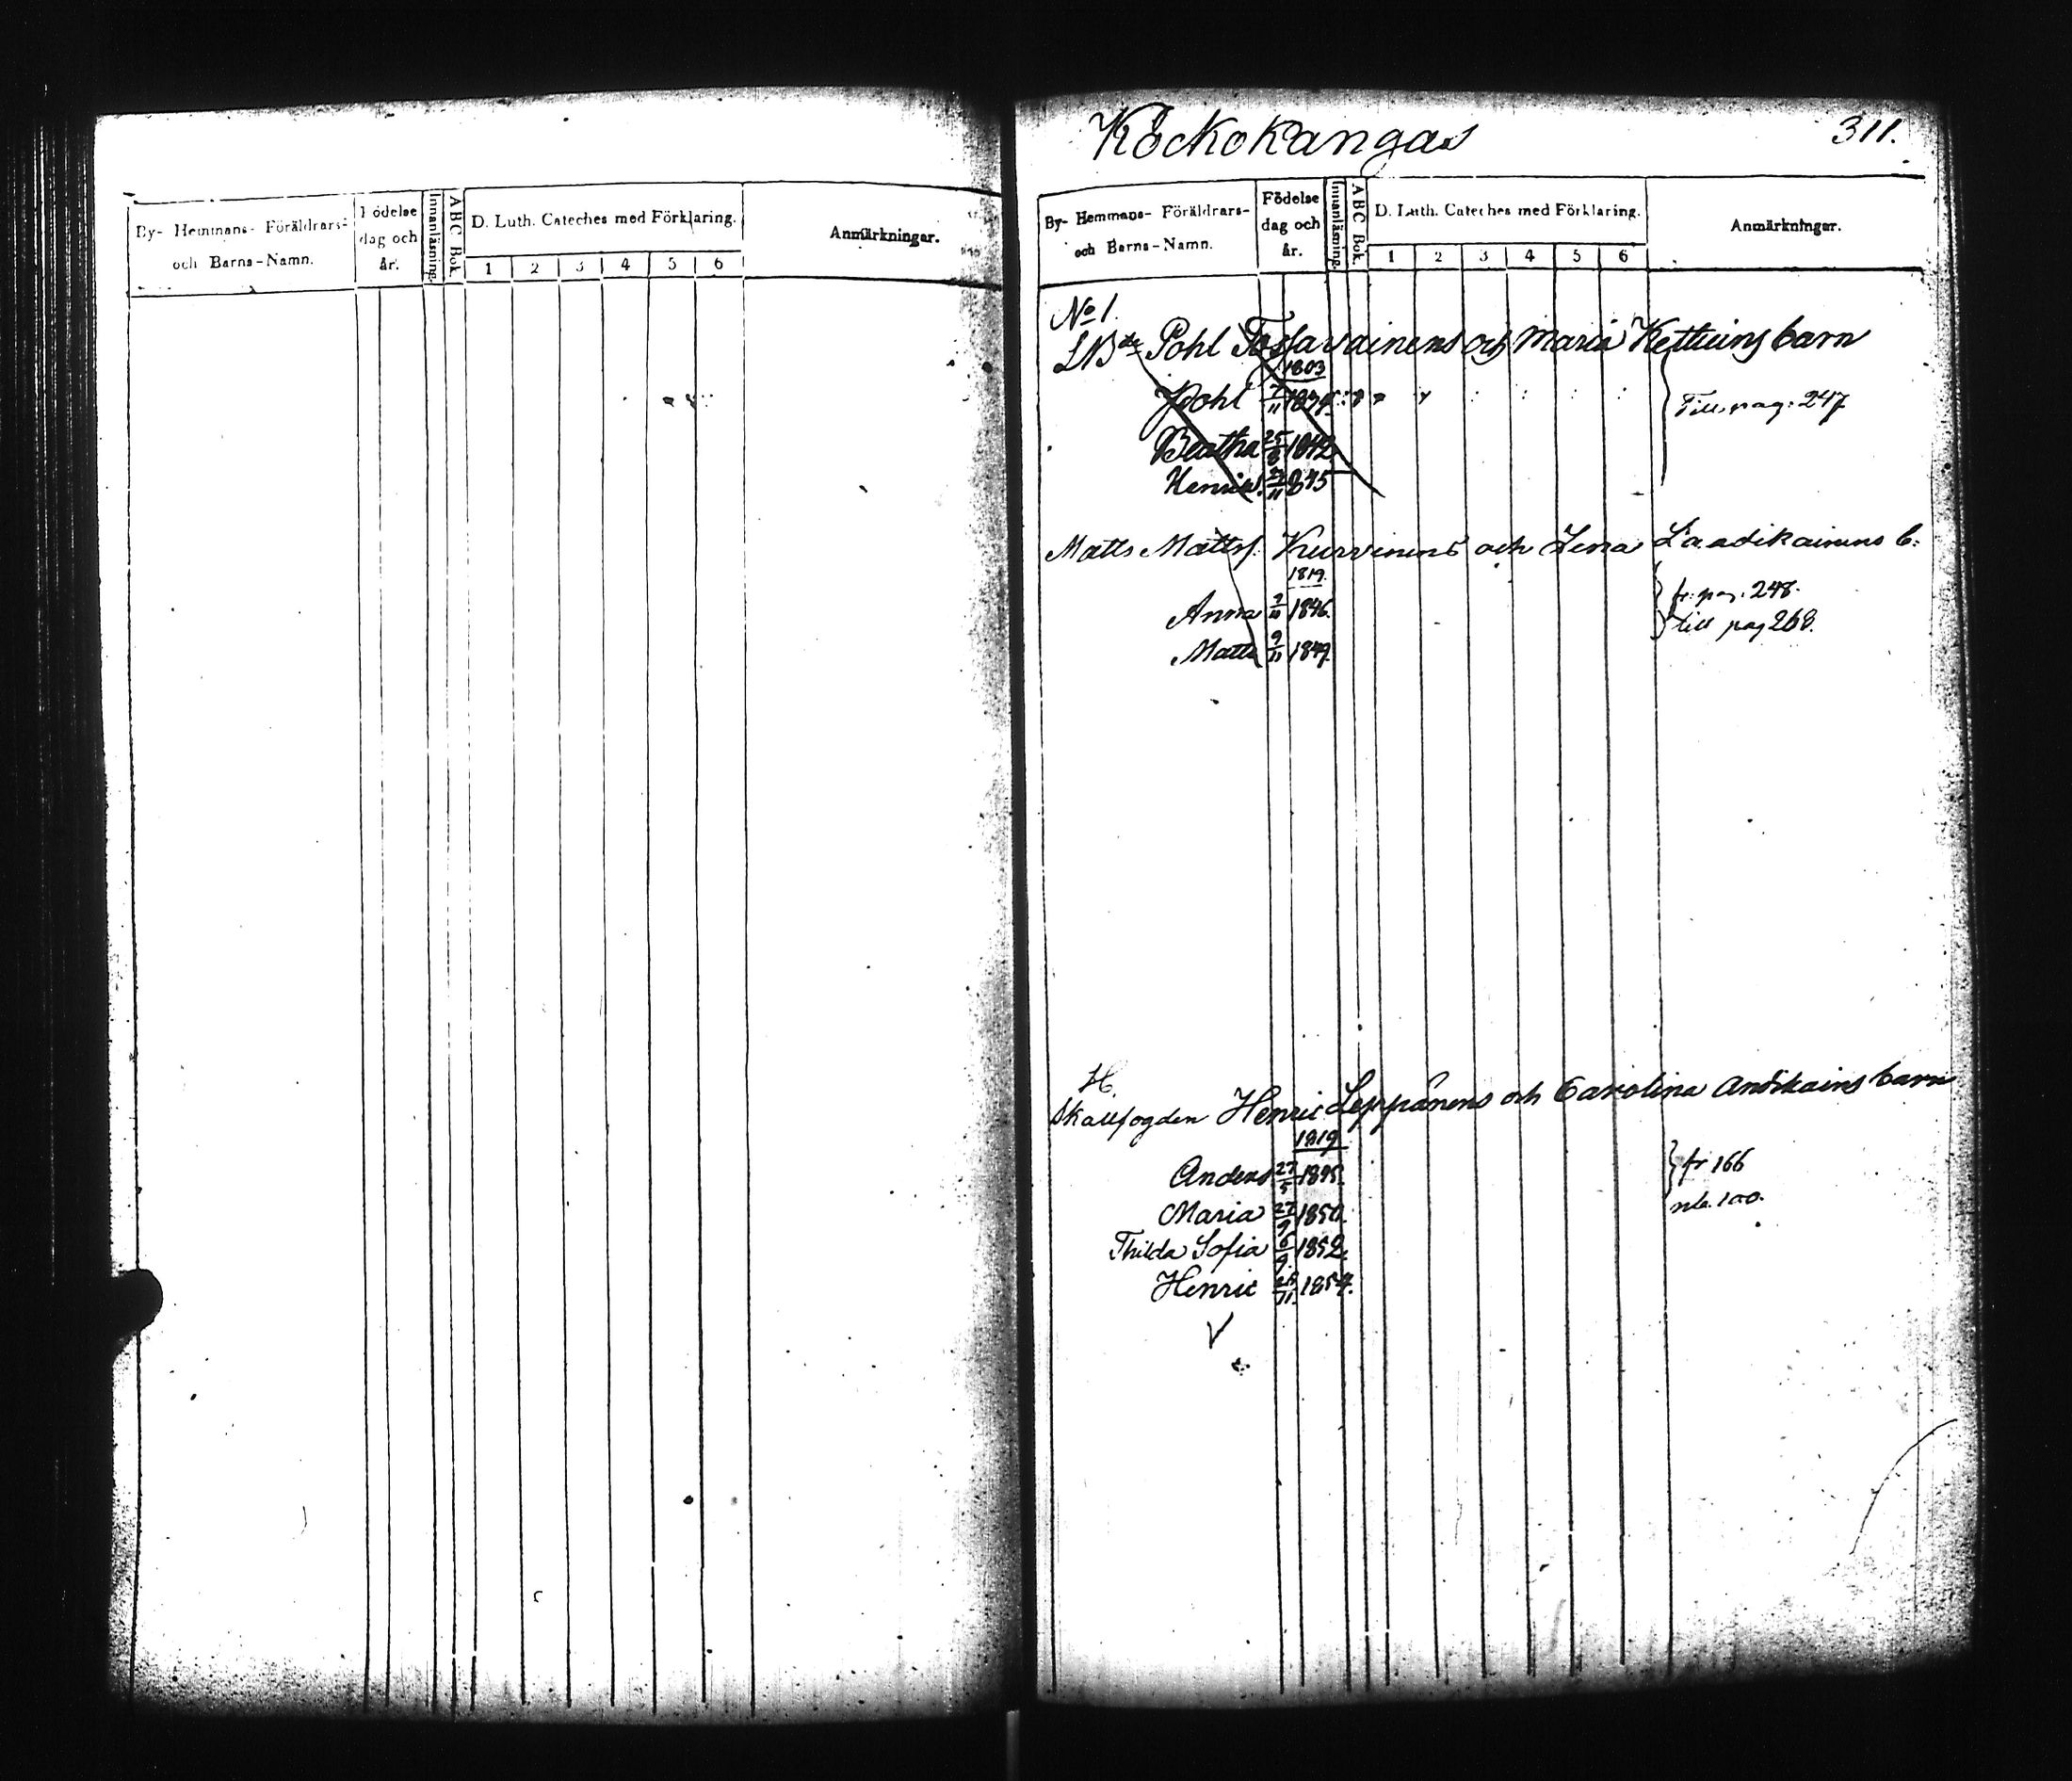 By- Hemmans- Föräldrars-
och Barns-Namn.
Födelse
dag och
år.
Innanläsning.
ABC Bok.
D. Luth. Cateches med Förklaring.
1 2 3 4 5 6
Anmärkningar.
Kockokangas 311.
By- Hemmans- Föräldrars-
och Barns-Namn.
Födelse
dag och
år.
Innanläsning.
ABC Bok.
D. Luth. Cateches med Förklaring.
1 2 3 4 5 6
Anmärkningar.
No 1.
Pohl Tossavainens och Maria barn
1803
Pohl Till pag: 247
Beatha 25/8 1842
Henric 1845
Matts Mattss. Kurvinens och Lena Laadikainens b:
1819.
Anna 1846. fr. pag. 248.
till pag 268.
Matts 9/11 1849.
H.
Skallfogden Henric Leppänens och Carolina Andikains barn
1819
Anders 27/5 fr 166
Maria 27/9 1850. 100.
Thilda Sofia 6/9 1852.
Henric 1854.